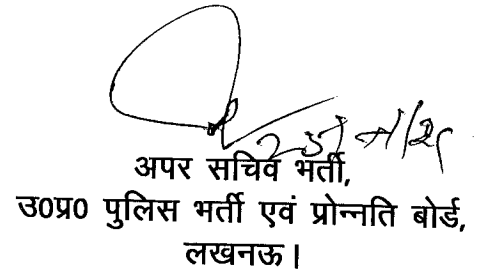 अपर सचिव भर्ती,
उ०प्र० पुलिस भर्ती एवं प्रोन्नति बोर्ड,
लखनऊ।